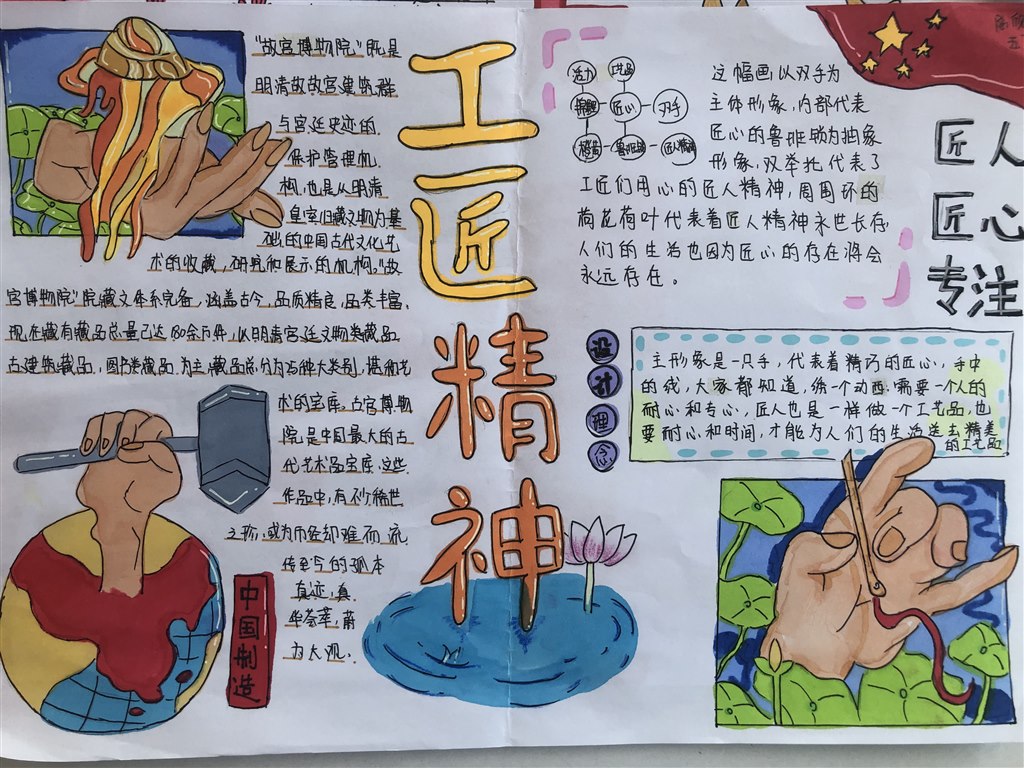 "故宫博物院"既是
明清故故宫建筑群
与宫廷史迹的
保护管理机
构,也是以明清
皇室旧藏文物为基
础的中国古代文化艺
术的收藏,研究和展示的机构。"故
宫博物院"院藏文体系完备,涵盖古今,品质精良,品类丰富.
现在藏有藏品总量已达180余万件,以明清宫廷文物类藏品
古建筑藏品,图书类藏品 为主.藏品总分为 大类别,堪称艺
术的宝库,古宫博物
院是中国最大的古
代艺术品宝库.这些
作品中,有不少稀世
之珍,或为历经却难而流
传至今的孤本
真迹,真
华荟萃,蔚
为大观.
中国制造
工匠精神
活力
匠心
双手
鲁班锁
匠人精神
这幅画以双手为
主体形象,内部代表
匠心的鲁班锁为抽象
形象,双举托代表了
工匠们用心的匠人精神,周围环的
荷花荷叶代表着匠人精神永世长存,
人们的生活也因为匠心的存在将会
永远存在。
匠人
匠心
专注
设计理念
主形象是一只手,代表着精巧的匠心,手中
的线,大家都知道,练一个动西,需要一个人的
耐心和专心,匠人也是一样做一个工艺品,也
要耐心和时间,才能为人们的生活送去精美
的工艺品